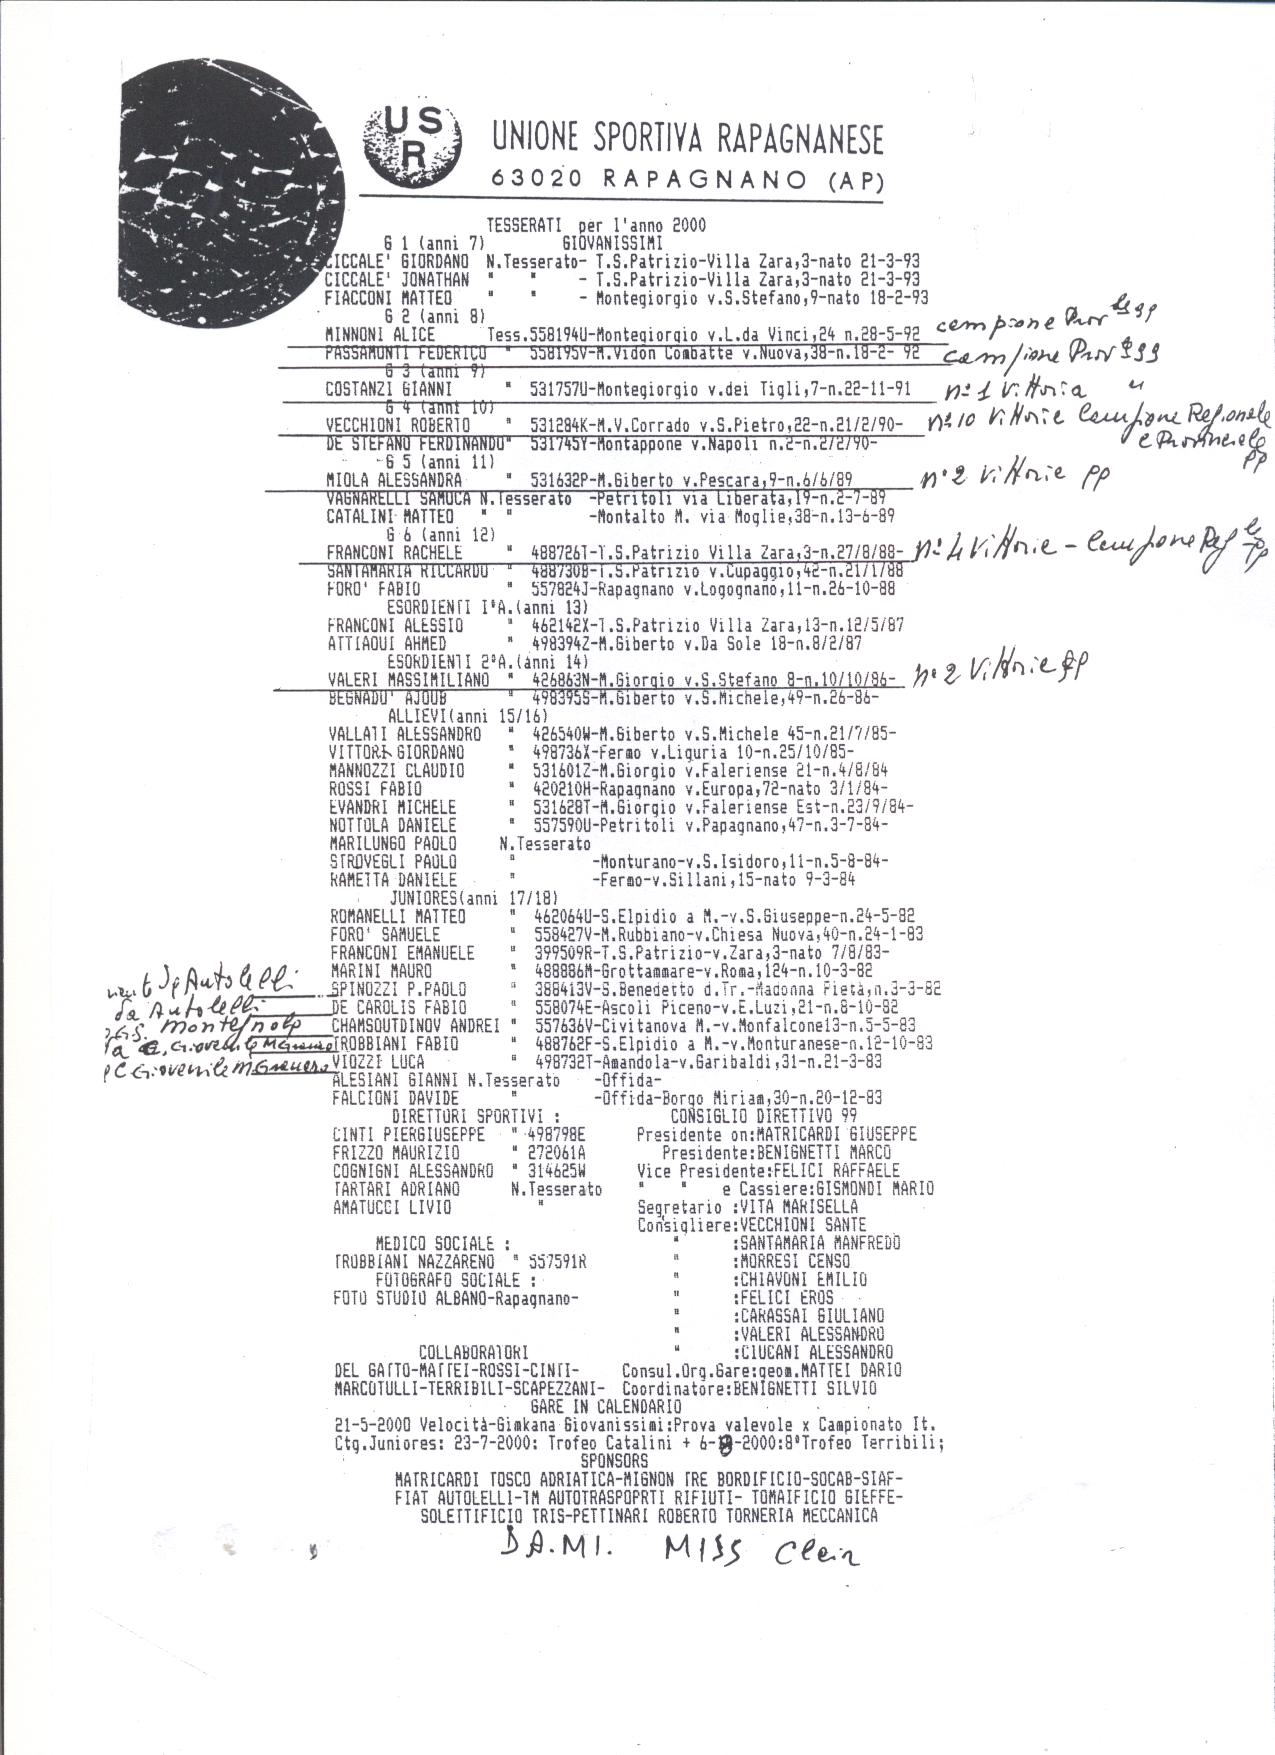 US
R
UNIONE SPORTIVA RAPAGNANESE
63020 RAPAGNANO (AP)
TESSERATI per l'anno 2000
G 1 (anni 7) GIOVANISSIMI
CICCALE' GIORDANO N.Tesserato- T.S.Patrizio-Villa Zara,3-nato 21-3-93
CICCALE' JONATHAN " " - T.S.Patrizio-Villa Zara,3-nato 21-3-93
FIACCONI MATTEO " " - Montegiorgio v.S.Stefano,9-nato 18-2-93
G 2 (anni 8)
MINNONI ALICE Tess.558194U-Montegiorgio v.L.da Vinci,24 n.28-5-92 campione Prov le 99
PASSAMONTI FEDERICO " 558195V-M.Vidon Combatte v.Nuova,38-n.18-2- 92 campione Prov le 99
G 3 (anni 9)
COSTANZI GIANNI " 531757U-Montegiorgio v.dei Tigli,7-n.22-11-91 n° 1 Vittoria "
G 4 (anni 10)
VECCHIONI ROBERTO " 531284K-M.V.Corrado v.S.Pietro,22-n.21/2/90- n° 10 Vittorie Campione Regionale
e Provinciale 99
DE STEFANO FERDINANDO" 531745Y-Montappone v.Napoli n.2-n.2/2/90-
G 5 (anni 11)
MIOLA ALESSANDRA " 531632P-M.Giberto v.Pescara,9-n.6/6/89 n° 2 Vittorie 99
VAGNARELLI SAMUCA N.Tesserato -Petritoli via Liberata,19-n.2-7-89
CATALINI MATTEO " " -Montalto M. via Moglie,38-n.13-6-89
G 6 (anni 12)
FRANCONI RACHELE " 488726T-T.S.Patrizio Villa Zara,3-n.27/8/88- n° 4 Vittorie - Campione Reg le 99
SANTAMARIA RICCARDO " 488730B-T.S.Patrizio v.Cupaggio,42-n.21/1/88
FORO' FABIO " 557824J-Rapagnano v.Logognano,11-n.26-10-88
ESORDIENTI I°A.(anni 13)
FRANCONI ALESSIO " 462142X-T.S.Patrizio Villa Zara,13-n.12/5/87
ATTIAOUI AHMED " 498394Z-M.Giberto v.Da Sole 18-n.8/2/87
ESORDIENTI 2°A.(anni 14)
VALERI MASSIMILIANO " 426863N-M.Giorgio v.S.Stefano 8-n.10/10/86- n° 2 Vittorie 99
BEGNADU' AJOUB " 498395S-M.Giberto v.S.Michele,49-n.26-86-
ALLIEVI(anni 15/16)
VALLATI ALESSANDRO " 426540W-M.Giberto v.S.Michele 45-n.21/7/85-
VITTORI GIORDANO " 498736X-Fermo v.Liguria 10-n.25/10/85-
MANNOZZI CLAUDIO " 531601Z-M.Giorgio v.Faleriense 21-n.4/8/84
ROSSI FABIO " 420210H-Rapagnano v.Europa,72-nato 3/1/84-
EVANDRI MICHELE " 531628T-M.Giorgio v.Faleriense Est-n.23/9/84-
NOTTOLA DANIELE " 557590U-Petritoli v.Papagnano,47-n.3-7-84-
MARILUNGO PAOLO N.Tesserato
STROVEGLI PAOLO " -Monturano-v.S.Isidoro,11-n.5-8-84-
RAMETTA DANIELE " -Fermo-v.Sillani,15-nato 9-3-84
JUNIORES(anni 17/18)
ROMANELLI MATTEO " 462064U-S.Elpidio a M.-v.S.Giuseppe-n.24-5-82
FORO' SAMUELE " 558427V-M.Rubbiano-v.Chiesa Nuova,40-n.24-1-83
FRANCONI EMANUELE " 399509R-T.S.Patrizio-v.Zara,3-nato 7/8/83-
MARINI MAURO " 488886M-Grottammare-v.Roma,124-n.10-3-82
Autolelli SPINOZZI P.PAOLO " 388413V-S.Benedetto d.Tr.-Madonna Pietà,n.3-3-82
da Autolelli DE CAROLIS FABIO " 558074E-Ascoli Piceno-v.E.Luzi,21-n.8-10-82
CHAMSOUTDINOV ANDREI " 557636V-Civitanova M.-v.Monfalcone13-n.5-5-83
Giovenile TROBBIANI FABIO " 488762F-S.Elpidio a M.-v.Monturanese-n.12-10-83
Giovenile VIOZZI LUCA " 498732T-Amandola-v.Garibaldi,31-n.21-3-83
ALESIANI GIANNI N.Tesserato -Offida-
FALCIONI DAVIDE " -Offida-Borgo Miriam,30-n.20-12-83
DIRETTORI SPORTIVI : CONSIGLIO DIRETTIVO 99
CINTI PIERGIUSEPPE " 498798E Presidente on:MATRICARDI GIUSEPPE
FRIZZO MAURIZIO " 272061A Presidente:BENIGNETTI MARCO
COGNIGNI ALESSANDRO " 314625W Vice Presidente:FELICI RAFFAELE
TARTARI ADRIANO N.Tesserato " " e Cassiere:GISMONDI MARIO
AMATUCCI LIVIO " Segretario :VITA MARISELLA
Consigliere:VECCHIONI SANTE
MEDICO SOCIALE : " :SANTAMARIA MANFREDO
TROBBIANI NAZZARENO " 557591R " :MORRESI CENSO
FOTOGRAFO SOCIALE : " :CHIAVONI EMILIO
FOTO STUDIO ALBANO-Rapagnano- " :FELICI EROS
" :CARASSAI GIULIANO
" :VALERI ALESSANDRO
COLLABORATORI " :CIUCANI ALESSANDRO
DEL GATTO-MATTEI-ROSSI-CINTI- Consul.Org.Gare:geom.MATTEI DARIO
MARCOTULLI-TERRIBILI-SCAPEZZANI- Coordinatore:BENIGNETTI SILVIO
GARE IN CALENDARIO
21-5-2000 Velocità-Gimkana Giovanissimi:Prova valevole x Campionato It.
Ctg.Juniores: 23-7-2000: Trofeo Catalini + 6- -2000:8°Trofeo Terribili;
SPONSORS
MATRICARDI TOSCO ADRIATICA-MIGNON TRE BORDIFICIO-SOCAB-SIAF-
FIAT AUTOLELLI-TM AUTOTRASPOPRTI RIFIUTI- TOMAIFICIO GIEFFE-
SOLETTIFICIO TRIS-PETTINARI ROBERTO TORNERIA MECCANICA
DA.MI. MISS Clair